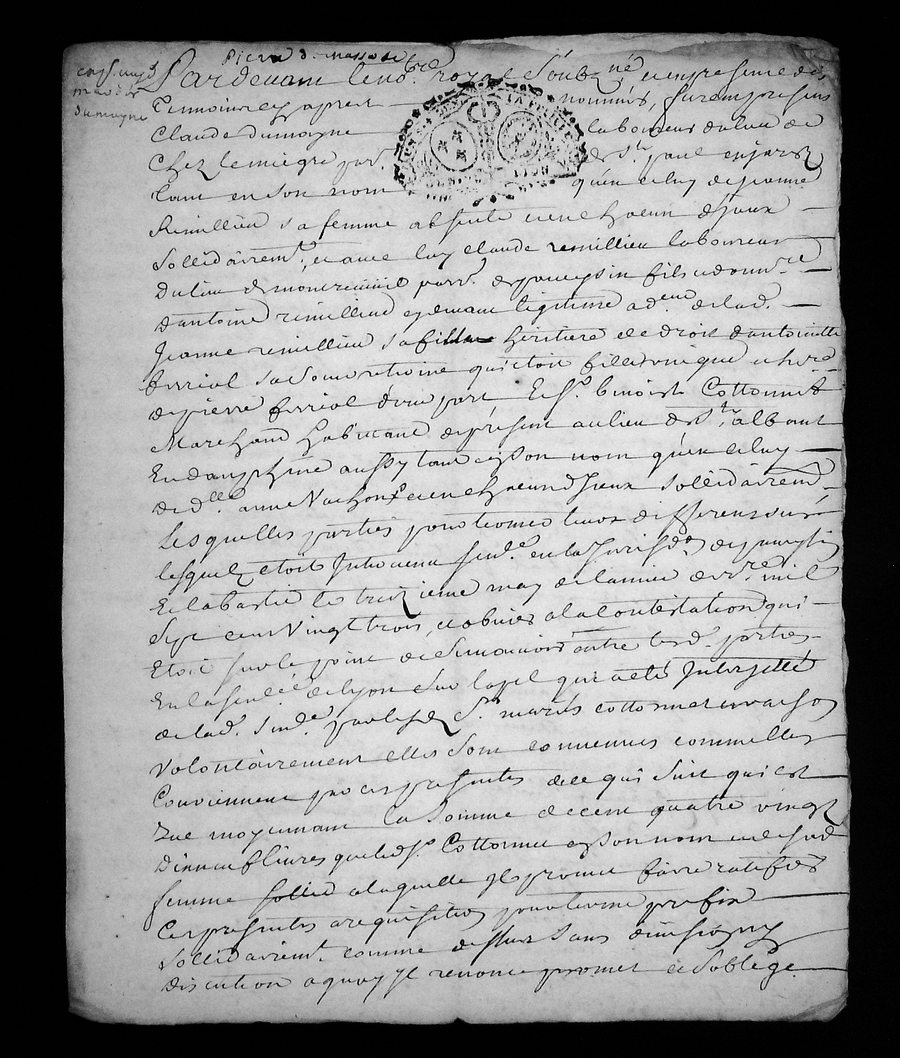 Pierre
Pardevant le no.re royal Soubz.né, et en presence des
temoins cy apres nommés, furent presens
Claude Dumoyne laboureur du lieu de
Chez le miegre parr. de St. paul en jarez
tant en son nom qu'en celuy de jeanne
Remillieu sa femme absente et en chacun d'jceux
sollidairem.t, et avec luy claude remillieu laboureur
du lieu de parr. de fils et donn.re
d'antoine remillieu et legitime ad.eur de lad.
Jeanne remillieu sa fille heritiere de droit d'antoinette
ferriol sa mere qui etoit fille unique et here
de pierre ferriol d'une part Et S.r benoist Cottonnet
Marchand habitant de present au lieu de St. albant
En dauphiné aussy tant en son nom qu'en celuy
de d.lle anne Vachon et en chacun d'Jceux sollidairem.t
Lesquelles parties pour terminer leurs differens sur
lesquels etoit Intervenu sent.ce en la Jurisd.on de
Et la bastie le treizieme may de l'année der.re mil
Sept cent Vingt trois, et obvier a la contestation qui
Etoit sur le point de entre lesd. parties
En la sen.cée de lyon sur l'apel qui a eté Interjetté
de lad. sent.ce par lesd. S.r mariés cottonnet et vachon
Volontairement elles sont convenues comme elles
Conviennent par ces presentes de ce qui suit qui est
que moyennant la somme de cent quatre vingt
Dix neuf livres que led. S.r Cottonnet esd. nom et de sad.
femme sollid. a laquelle Jl promet faire ratifier
Ces presentes a requisition pour terme prefix
Sollidairem.t comme dessus sans division ny
discution a quoy Jl renonce promet et s'oblige